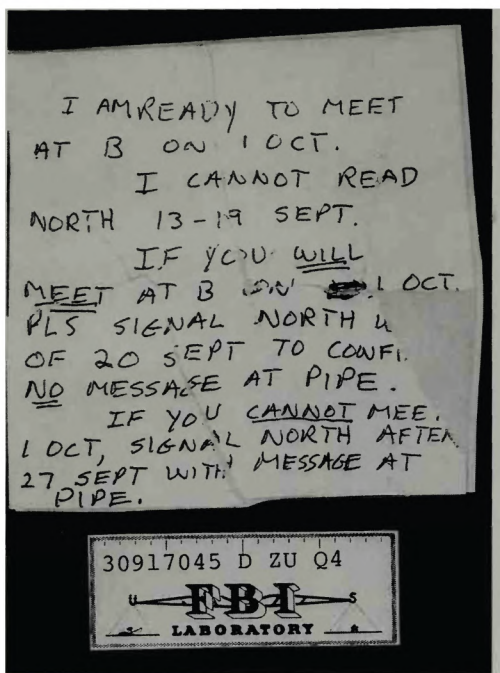 I AM READY TO MEET
AT B ON 1 OCT.
I CANNOT READ
NORTH 13-19 SEPT.
IF YOU WILL
MEET AT B ON 1 OCT.
PLS SIGNAL NORTH W
OF 20 SEPT TO CONFI.
NO MESSAGE AT PIPE.
IF YOU CANNOT MEE.
1 OCT, SIGNAL NORTH AFTER
27 SEPT WITH MESSAGE AT
PIPE.
30917045 D ZU Q4
U FBI S
LABORATORY